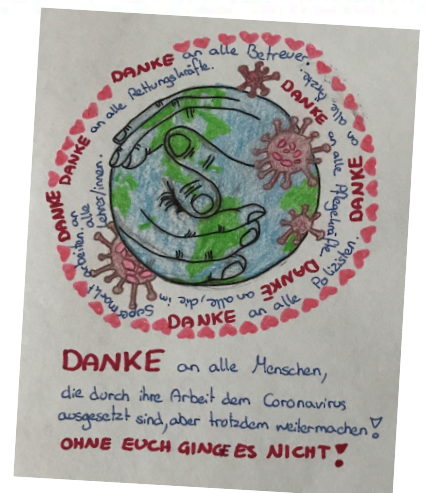 DANKE an alle Betreuer.
DANKE an alle Ärzte.
DANKE an alle Pflegekräfte.
DANKE an alle Polizisten
DANKE an alle, die im
Supermarkt arbeiten.
DANKE an alle Lehrer/innen.
DANKE an alle Rettungskräfte.
DANKE an alle Menschen,
die durch ihre Arbeit dem Coronavirus
ausgesetzt sind, aber trotzdem weitermachen!
OHNE EUCH GINGE ES NICHT!